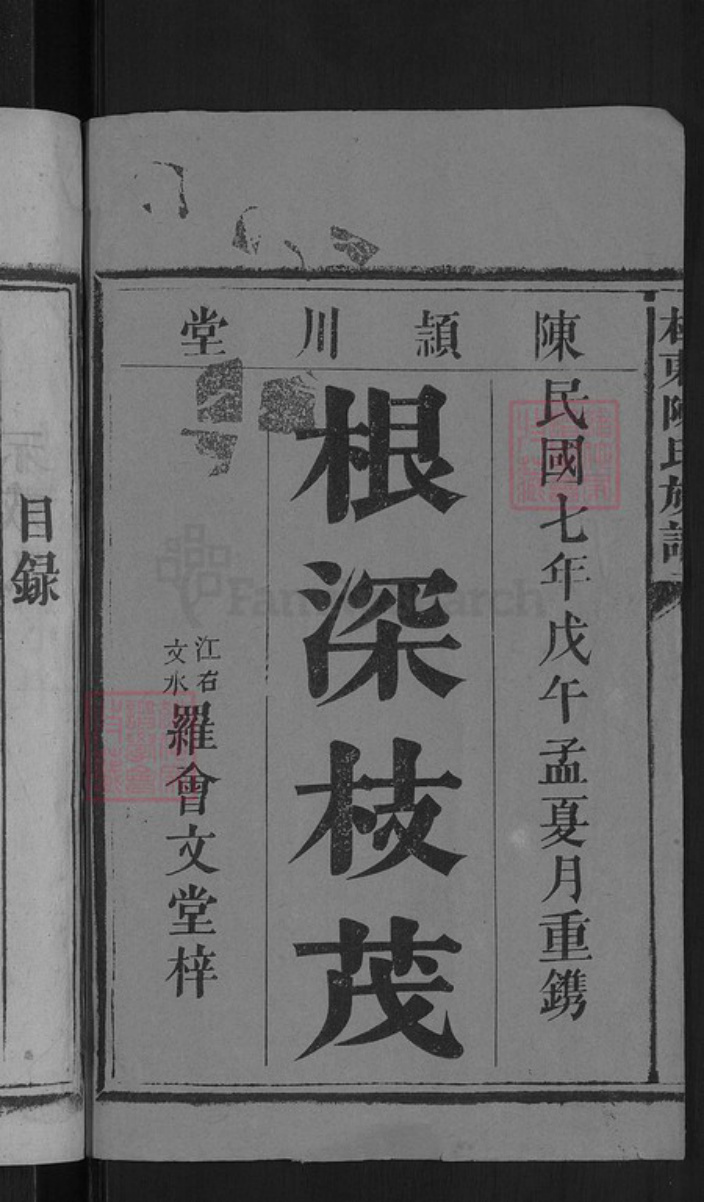 陳頴川堂
民國七年戊午孟夏月重鐫
根深枝茂
江右
文水
羅會文堂梓
東陳氏族譜
目録
FamilySearch